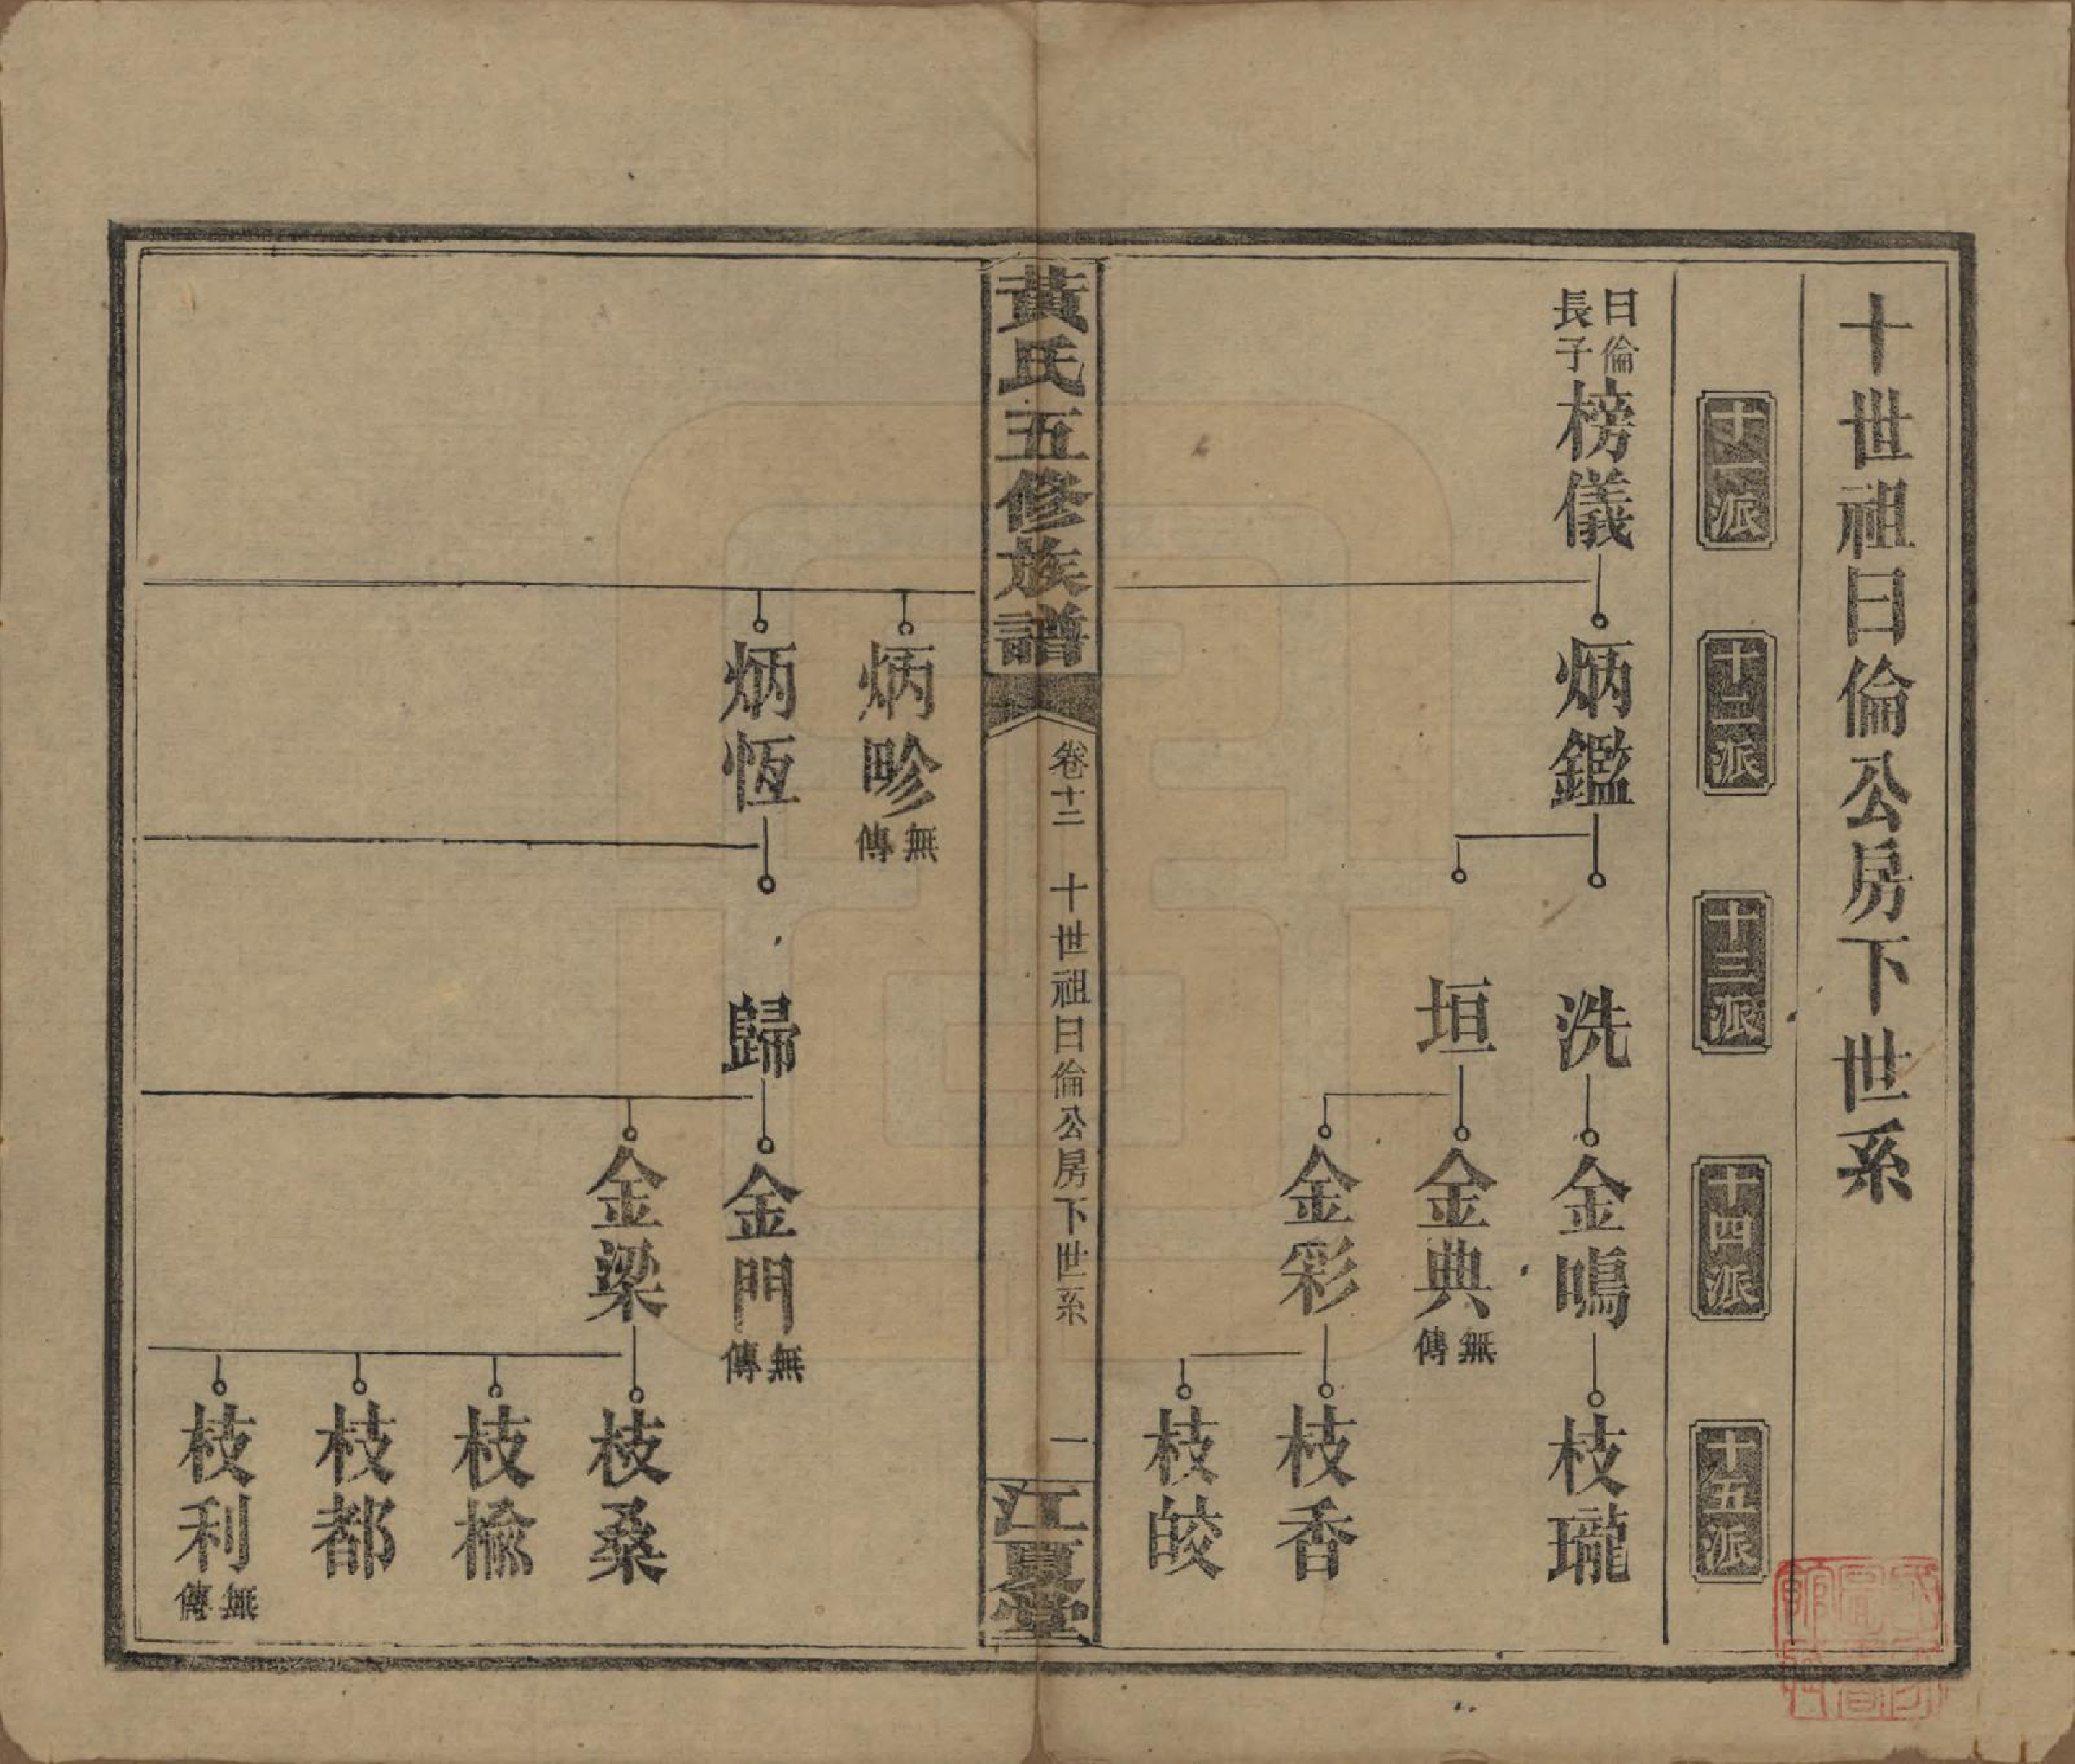 十世祖曰倫公房下世系
十一派
十二派
十三派
十四派
十五派
曰倫長子
榜儀
炳鑑
洗
金鳴
枝瓏
垣
金典 無傳
金彩
枝香
枝皎
黃氏五修族譜
卷十二
十世祖曰倫公房下世系
一
江夏堂
炳畛 無傳
炳恆
歸
金門 無傳
金梁
枝桑
枝楡
枝都
枝利 無傳